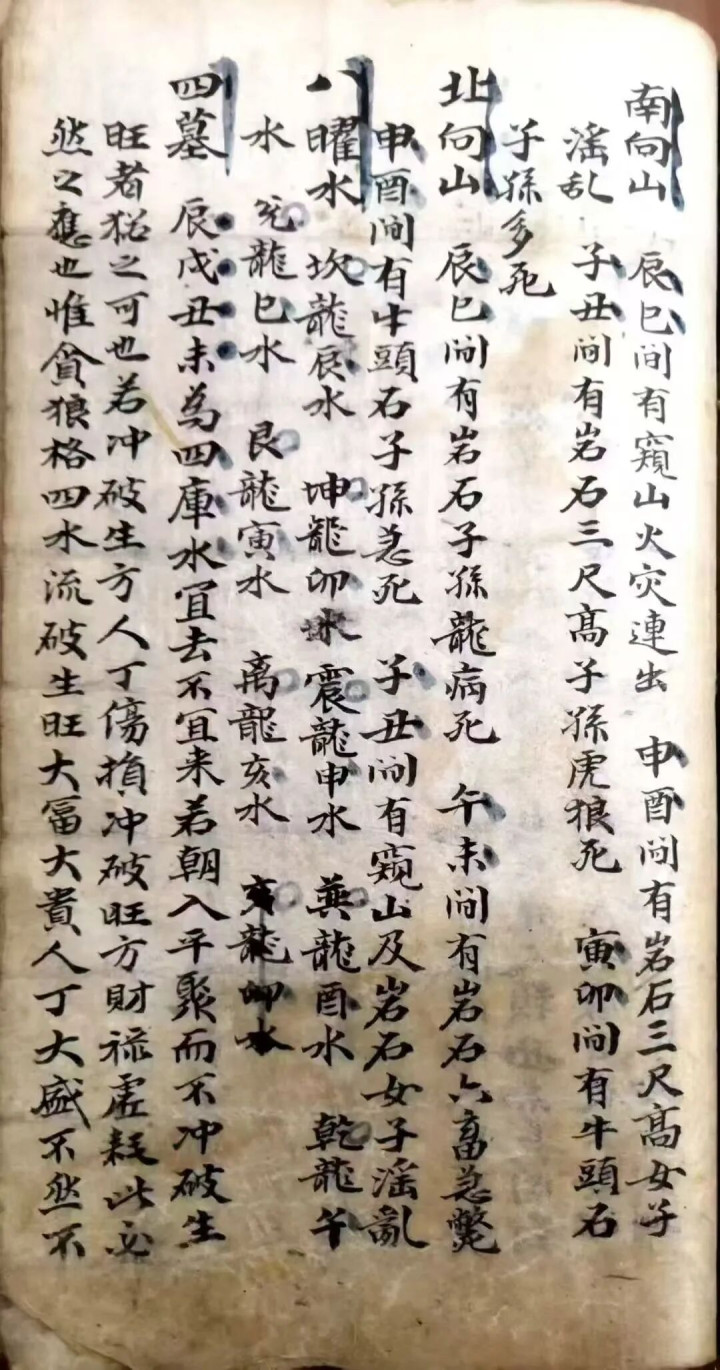 南向山 辰巳間有窺山火灾連出 申酉間有岩石三尺高女子
淫乱 子丑間有岩石三尺高子孫虎狼死 寅卯間有牛頭石
子孫多死
北向山 辰巳間有岩石子孫龍病死 午未間有岩石六畜急斃
申酉間有牛頭石子孫急死 子丑間有窺山及岩石女子淫亂
八曜水 坎龍辰水 坤龍卯水 震龍申水 巽龍酉水 乾龍午
水 兊龍巳水 艮龍寅水 离龍亥水 亥龍卯水
四墓 辰戌丑未為四庫水冝去不冝来若朝入平聚而不冲破生
旺者犹之可也若冲破生方人丁傷損冲破旺方財祿虛耗此必
然之應也惟貪狼格四水流破生旺大冨大貴人丁大盛不然不